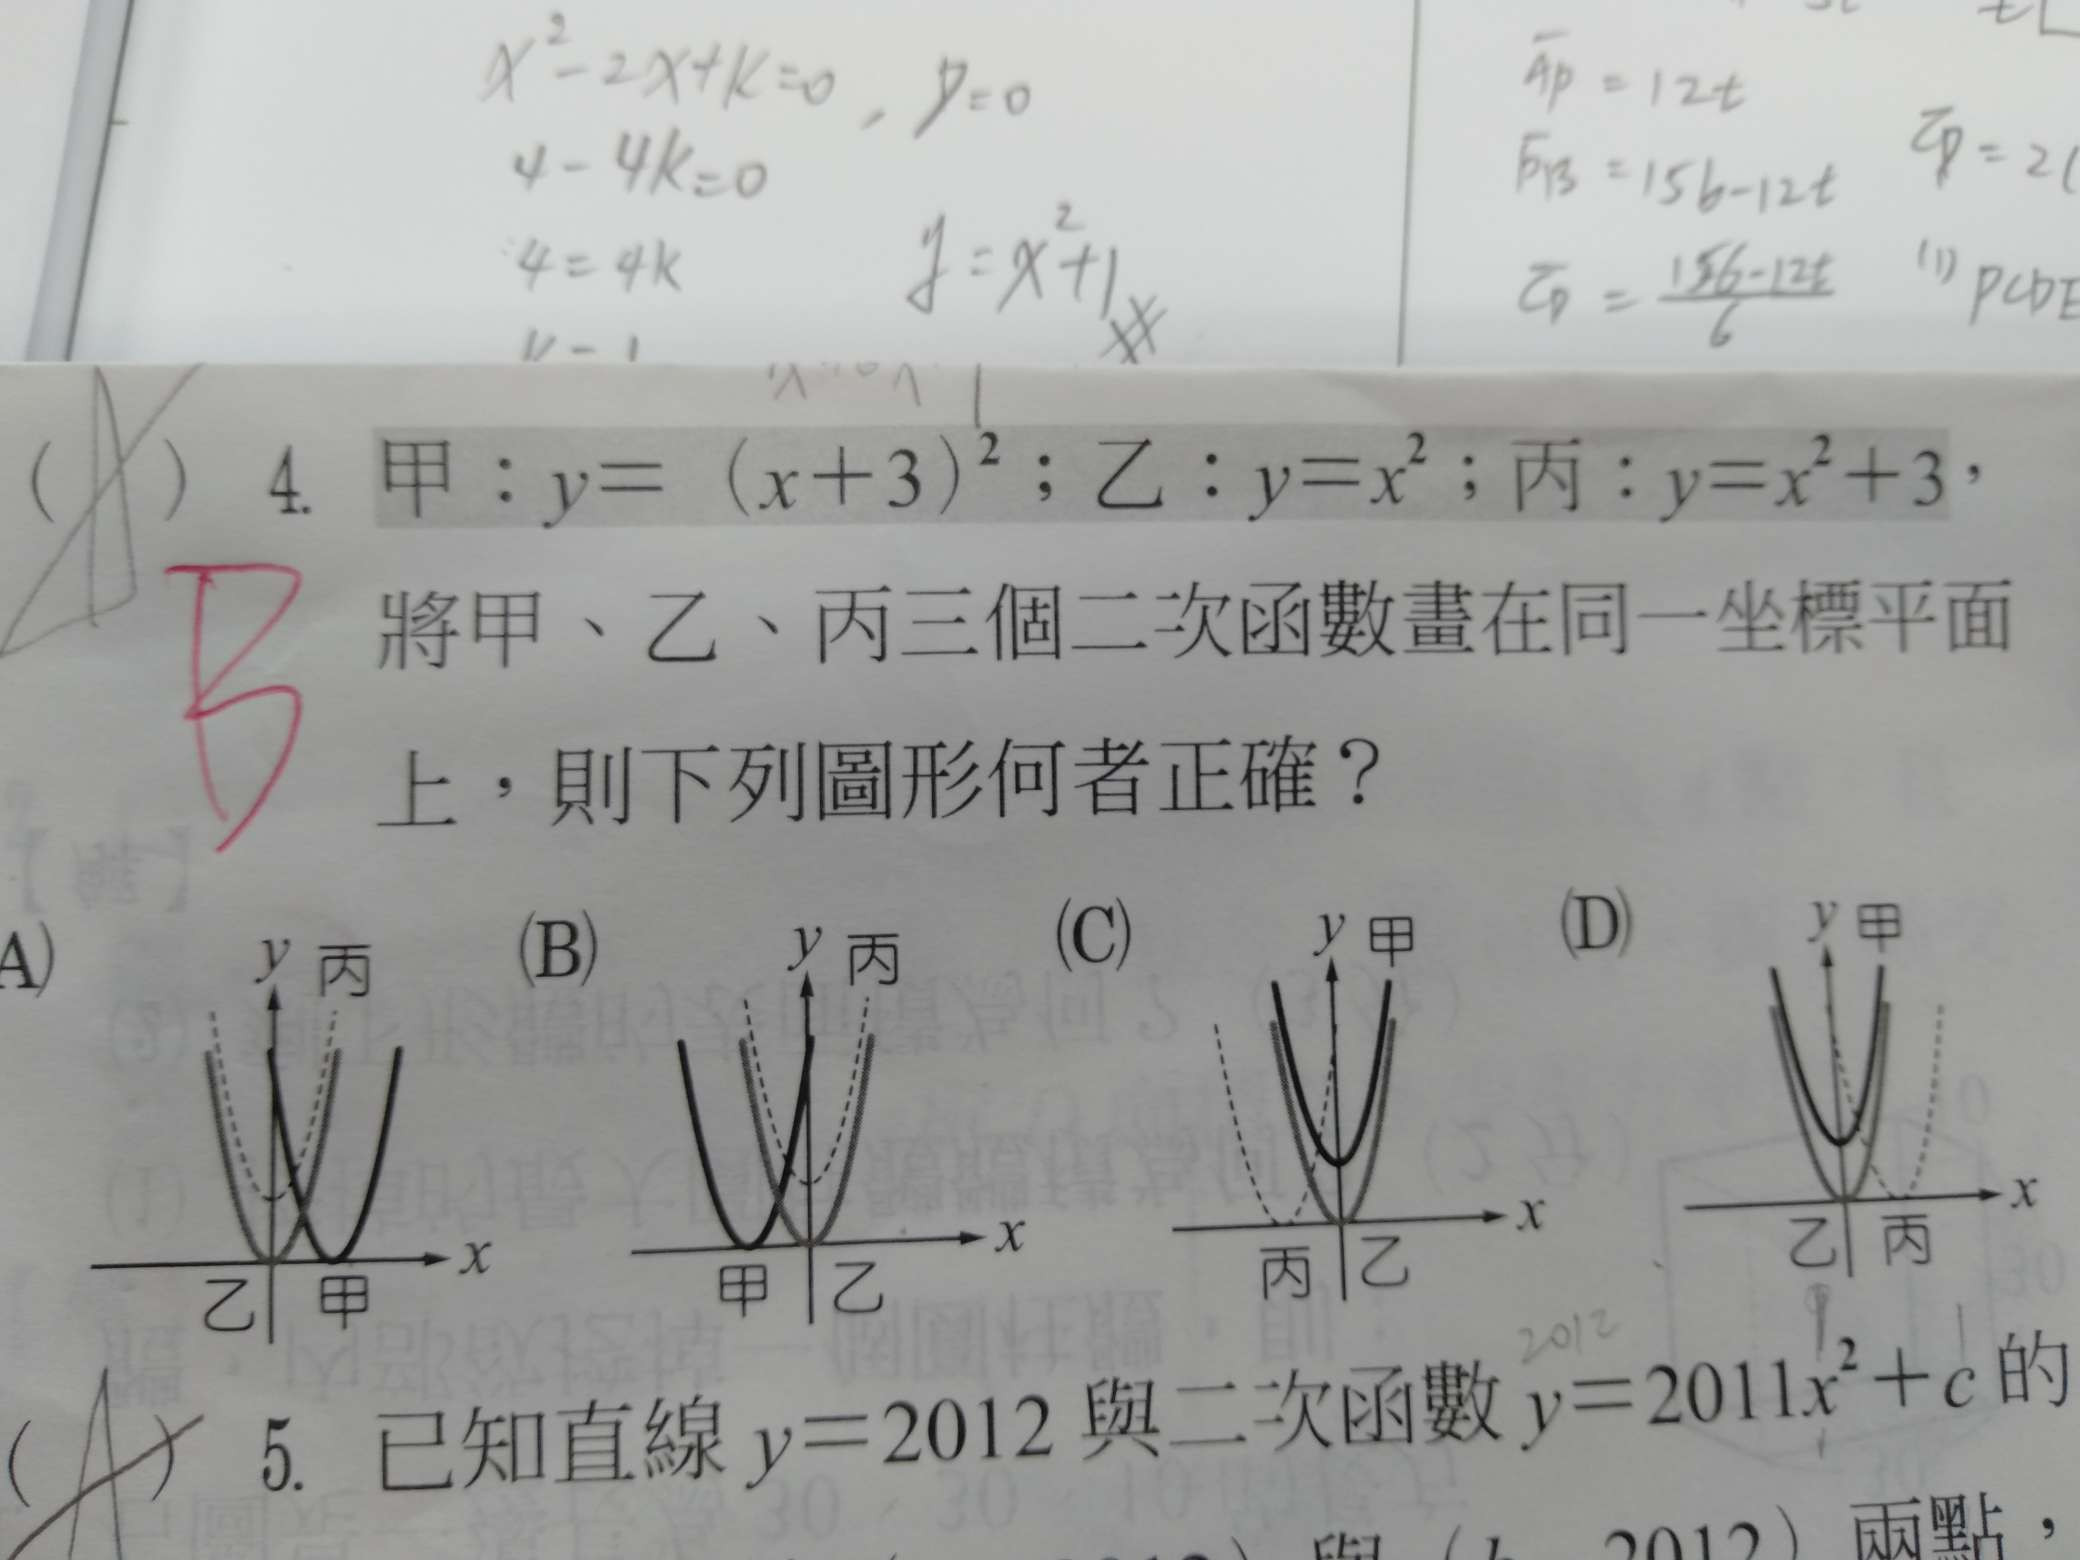 x²-2x+k=0, y=0
4-4k=0
4=4k
y=x²+1
AP=12t
PB=156-12t
CP=2(
CD=156-12t/6
(1) PCDE
(A) 4. 甲：y＝（x＋3）²；乙：y＝x²；丙：y＝x²＋3，
B
將甲、乙、丙三個二次函數畫在同一坐標平面
上，則下列圖形何者正確？
A) y 丙 x 乙 甲
(B) y 丙 x 甲 乙
(C) y 甲 x 丙 乙
(D) y 甲 x 乙 丙
2012
(A) 5. 已知直線 y＝2012 與二次函數 y＝2011x²＋c 的
2012）與（b，2012）兩點，